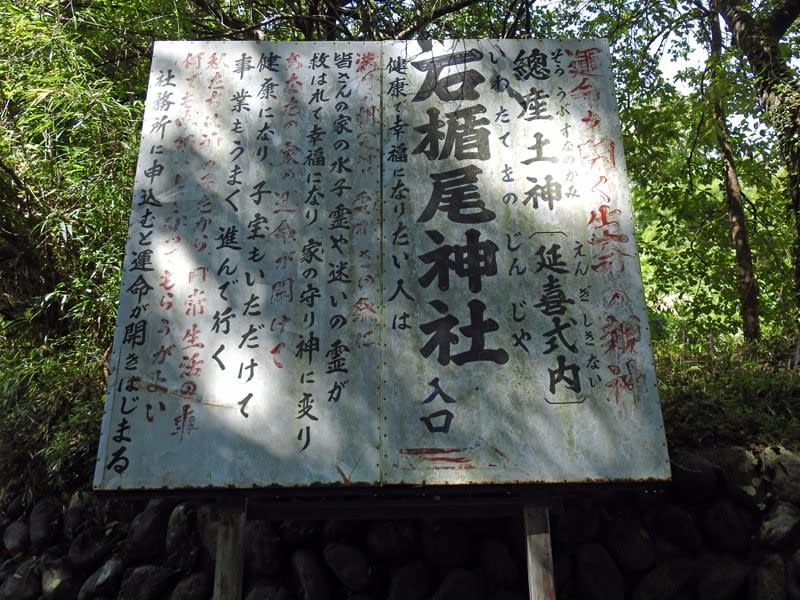 運命を開く生命の親神
そう うぶ すなのかみ
總産土神〔延喜式内〕
えん ぎ しき ない
いわ たて をの じん じゃ
石楯尾神社入口
健康で幸福になりたい人は
皆さんの家の水子霊や迷いの霊が
救はれて幸福になり家の守り神に変り
あなたの家の運命が開けて
健康になり子宝もいただけて
事業もうまく進んで行く
日常生活の事
もらうがよい
社務所に申込むと運命が開きはじまる